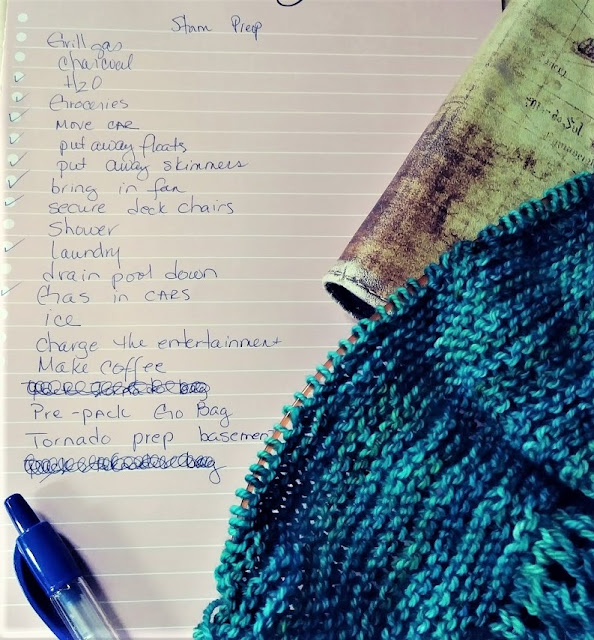 Storm Prep
Grill gas
Charcoal
H2O
Groceries
Move CAR
put away floats
put away skimmers
bring in fan
secure deck chairs
Shower
Laundry
drain pool down
Gas in CARS
ice
Charge the entertainment
Make Coffee
Pre-pack Go Bag
Tornado prep basemen
do Sul